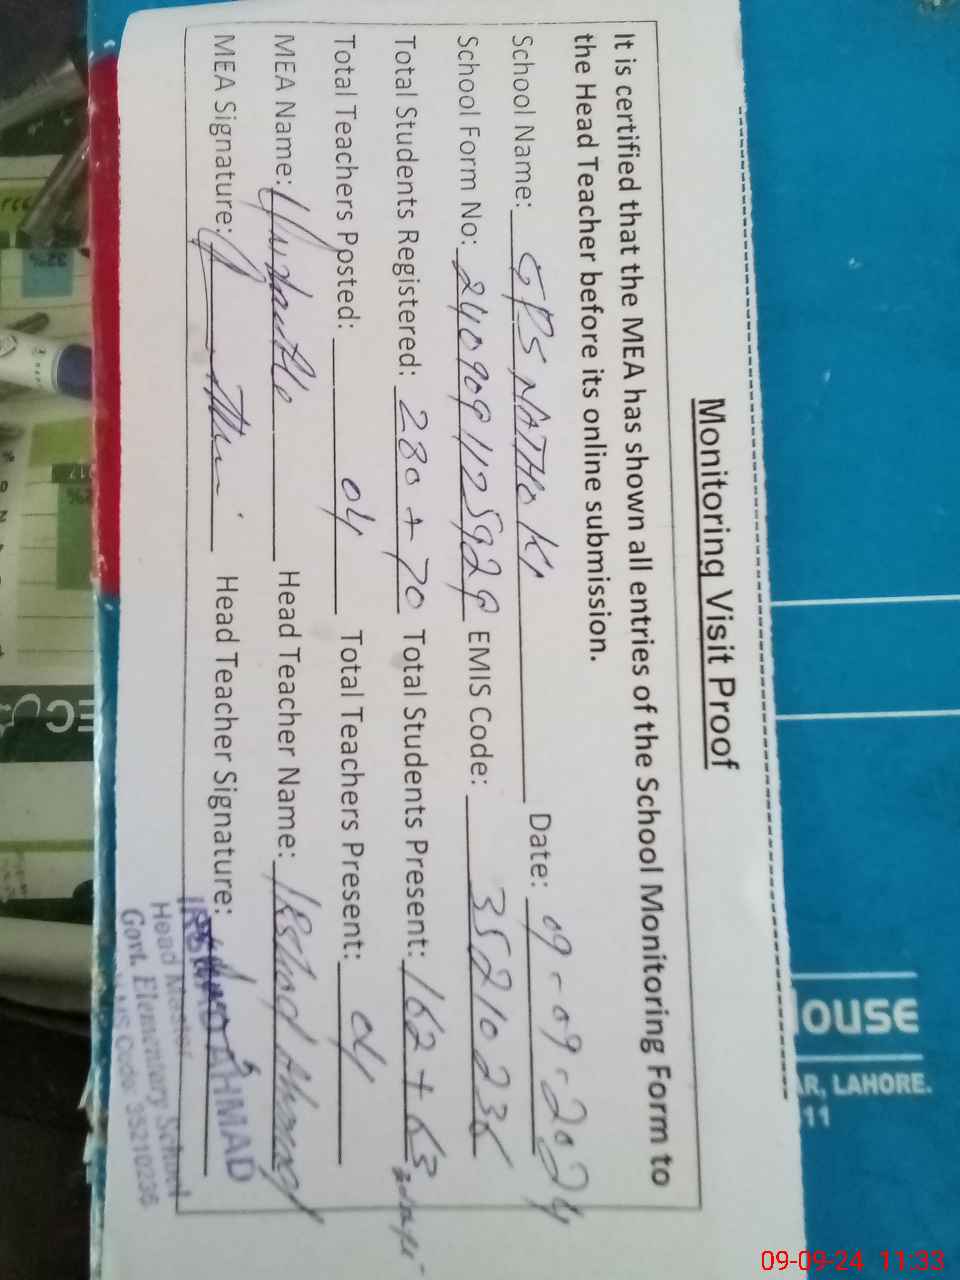 Monitoring Visit Proof
It is certified that the MEA has shown all entries of the School Monitoring Form to
the Head Teacher before its online submission.
School Name: GPS NATHOKI Date: 09-09-2024
School Form No: EMIS Code: 35210236
Total Students Registered: 280 + 70 Total Students Present: 162 + 63
Total Teachers Posted: 04 Total Teachers Present: 04
MEA Name: Head Teacher Name: Irshad Ahmad
MEA Signature: Head Teacher Signature:
IRSHAD AHMAD
Head Master
Govt. Elementary School
Code: 35210236
ouse
AR, LAHORE.
11
32%
09-09-24 11:33